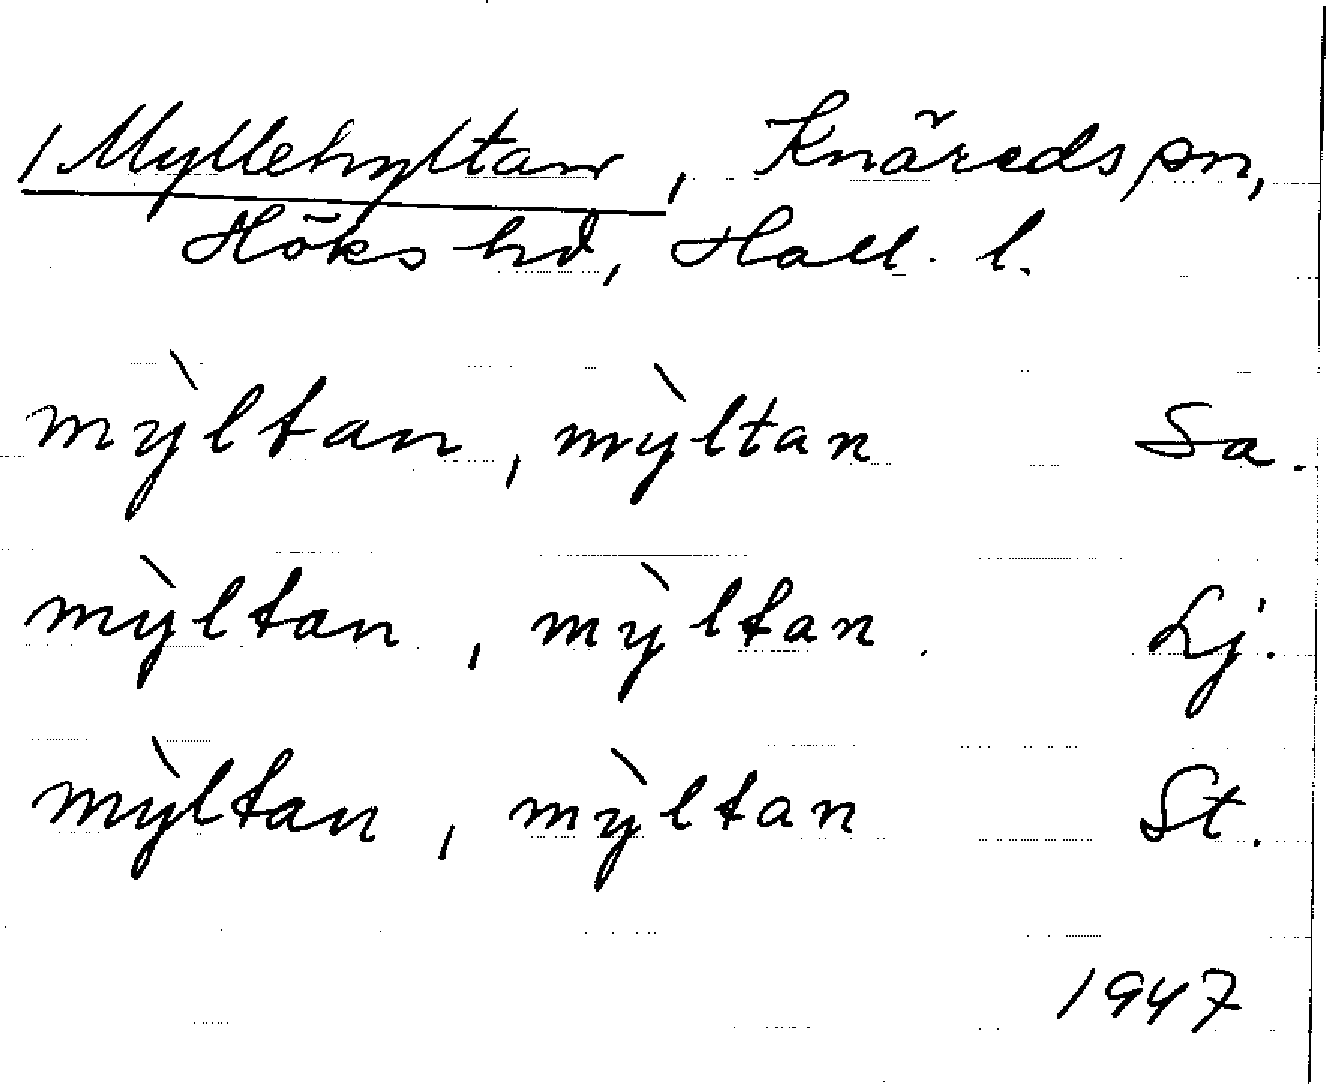 /Myllehyltan, Knäreds sn,
Höks hd, Hall. l.
mỳltan, mỳltan Sa.
mỳltan, mỳltan. Lj.
mỳltan, mỳltan St.
1947